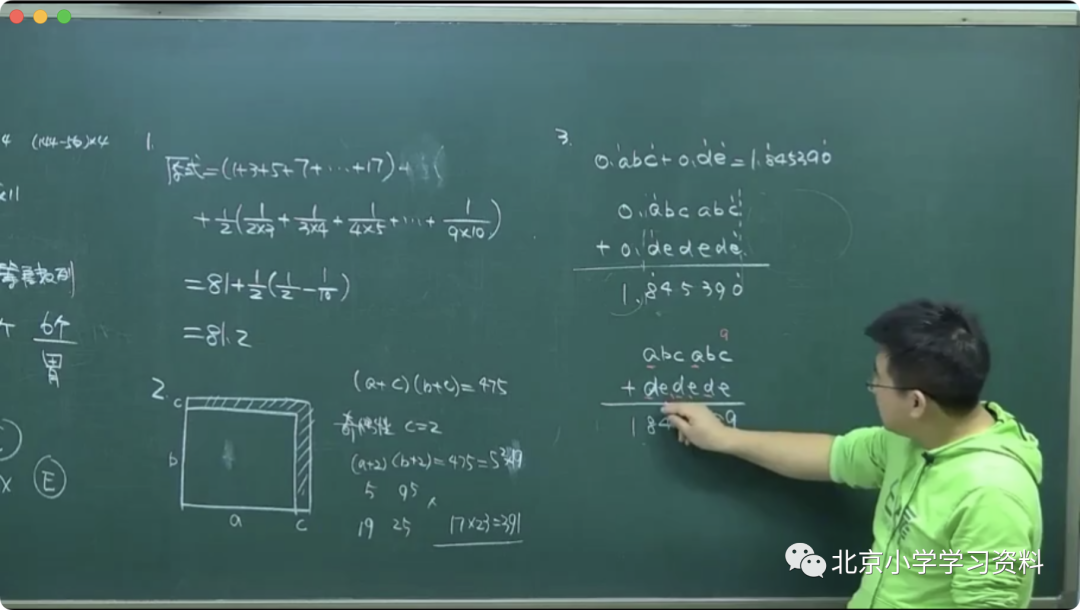 4 (144-56)×4
×11
等差数列
个 6个
E
X
1.
原式=(1+3+5+7+…+17)+
+1/2(1/2×3+1/3×4+1/4×5+…+1/9×10)
=81+1/2(1/2-1/10)
=81.2
2.
c
b
a c
(a+c)(b+c)=475
奇偶性 c=2
(a+2)(b+2)=475=5²×19
5 95 ×
19 25 17×23=391
3.
0.ȧbċ+0.ḋė=1.8̇45390̇
0.ȧbcabċ
+ 0.ḋededė
1.8̇45390̇
9
abcabc
+ dedede
184 9
北京小学学习资料